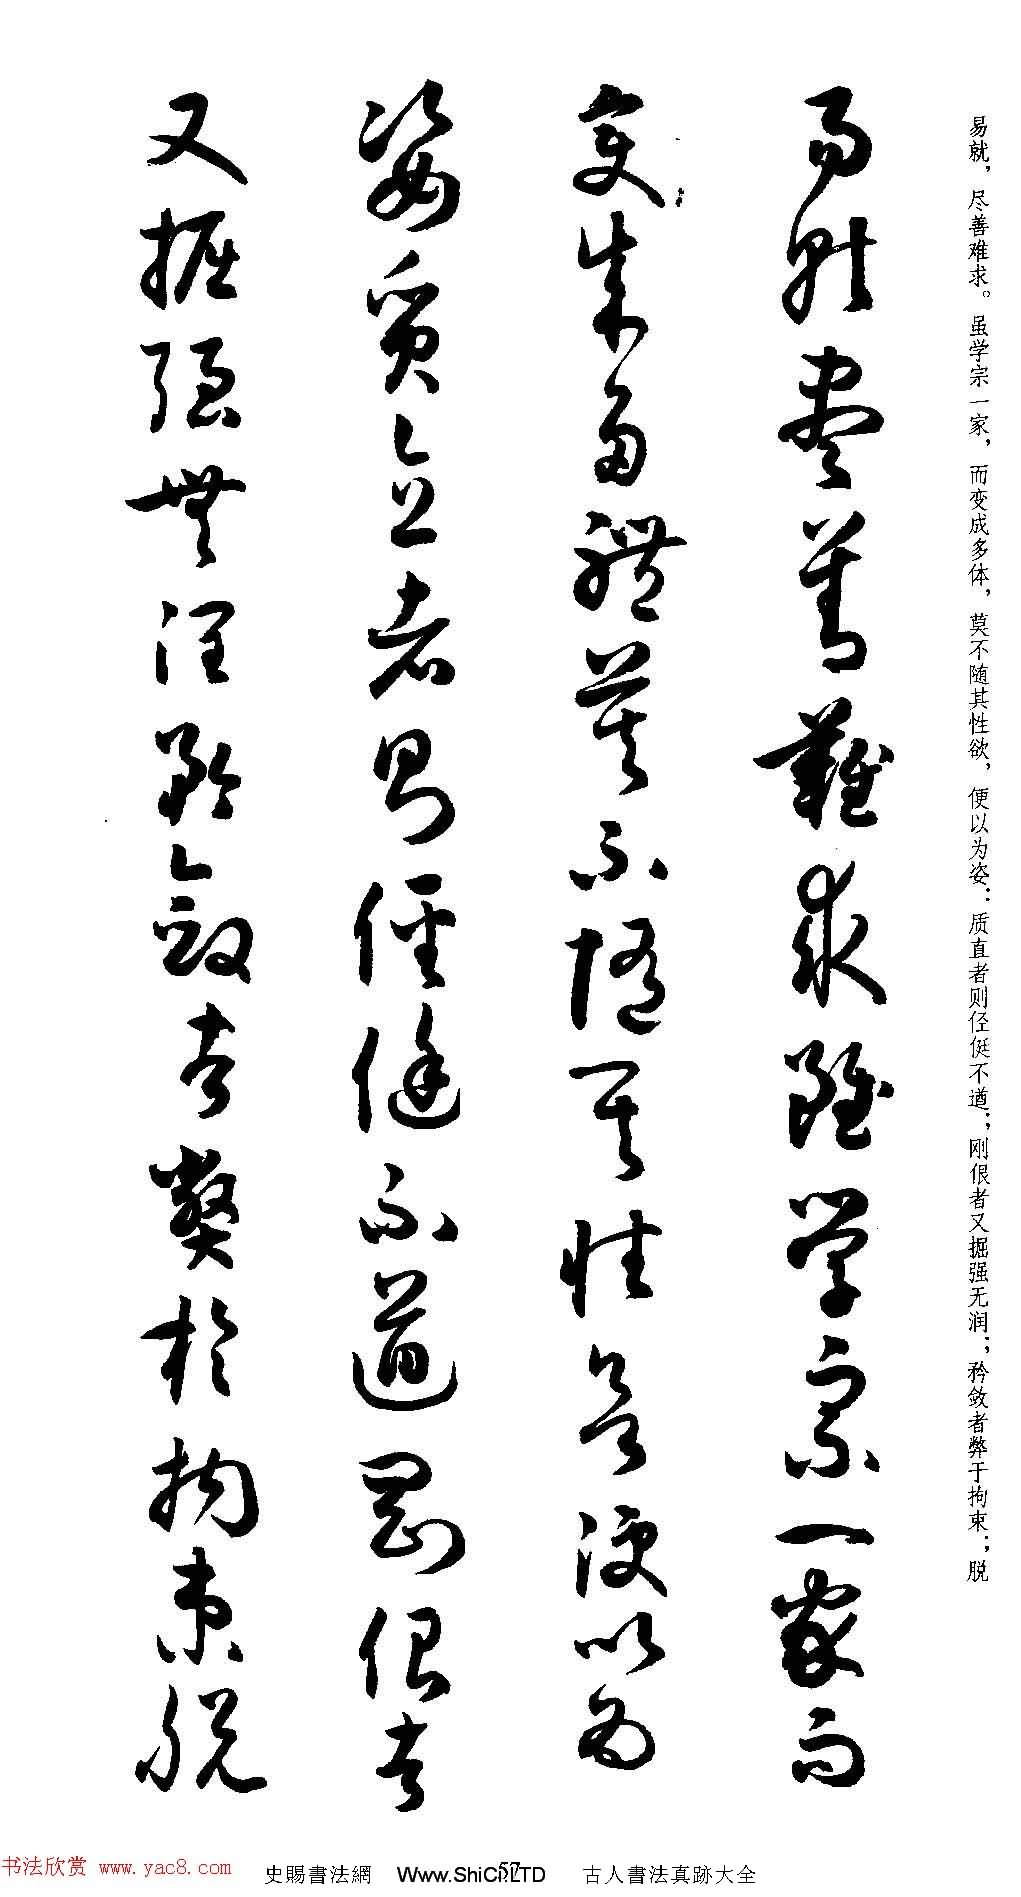 易就，尽善难求。虽学宗一家，而变成多体，莫不随其性欲，便以为姿：质直者则径侹不遒；刚佷者又掘强无润；矜敛者弊于拘束；脱
易就尽善難求雖学宗一家而
变成多體莫不随其性欲便以为
姿質直者則徑侹不遒剛佷者
又掘强無潤矜斂者弊於拘束脱
书法欣赏 www.yac8.com 史賜書法網 www.ShiCi.LTD 57 古人書法真跡大全